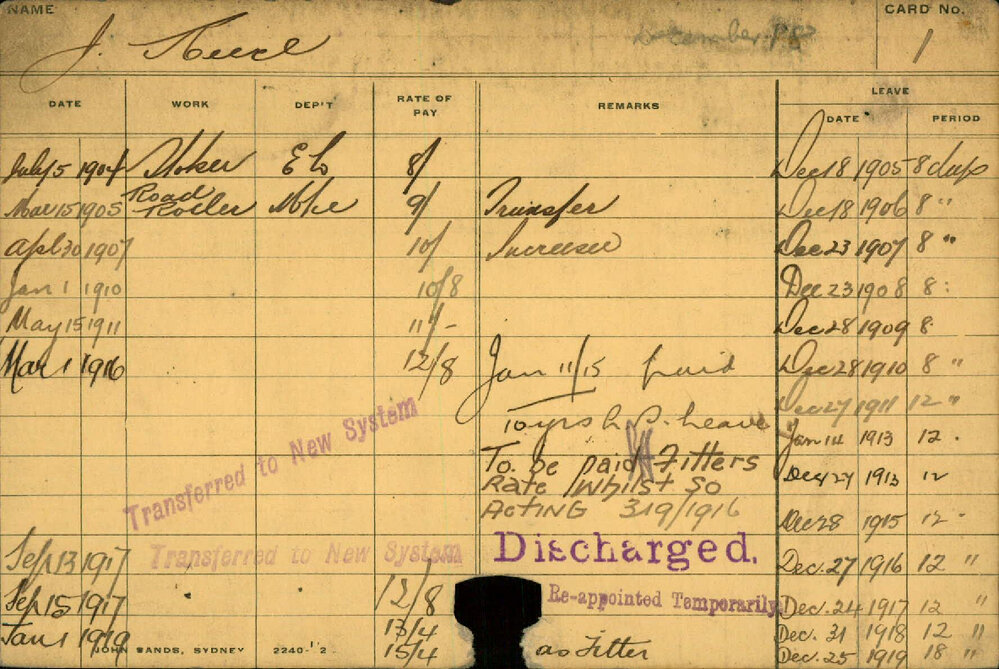 NAME CARD No.
J. December 1
DATE WORK DEP'T RATE OF PAY REMARKS LEAVE
DATE PERIOD
July 5 1904 Stoker E L 8/ Dec 18 1905 8 days
Mar 15 1905 Road Roller 9/ Transfer Dec 18 1906 8 "
Apl 30 1907 10/ Increase Dec 23 1907 8 "
Jan 1 1910 10/8 Dec 23 1908 8 :
May 15 1911 11/- Dec 28 1909 8
Mar 1 1916 12/8 Jan 11/15 paid Dec 28 1910 8 "
10 yrs L. S. leave Dec 27 1911 12 "
Transferred to New System Jan 14 1913 12 .
To be paid Fitters
Rate whilst so Dec 27 1913 12
Acting 3/9/1916 Dec 28 1915 12
Sep 13 1917 Transferred to New System Discharged. Dec. 27 1916 12 "
Sep 15 1917 12/8 Re-appointed Temporarily Dec. 24 1917 12 "
Jan 1 1919 13/4 Dec. 31 1918 12 "
JOHN SANDS, SYDNEY 2240-12 15/4 as Fitter Dec. 25 1919 18 "